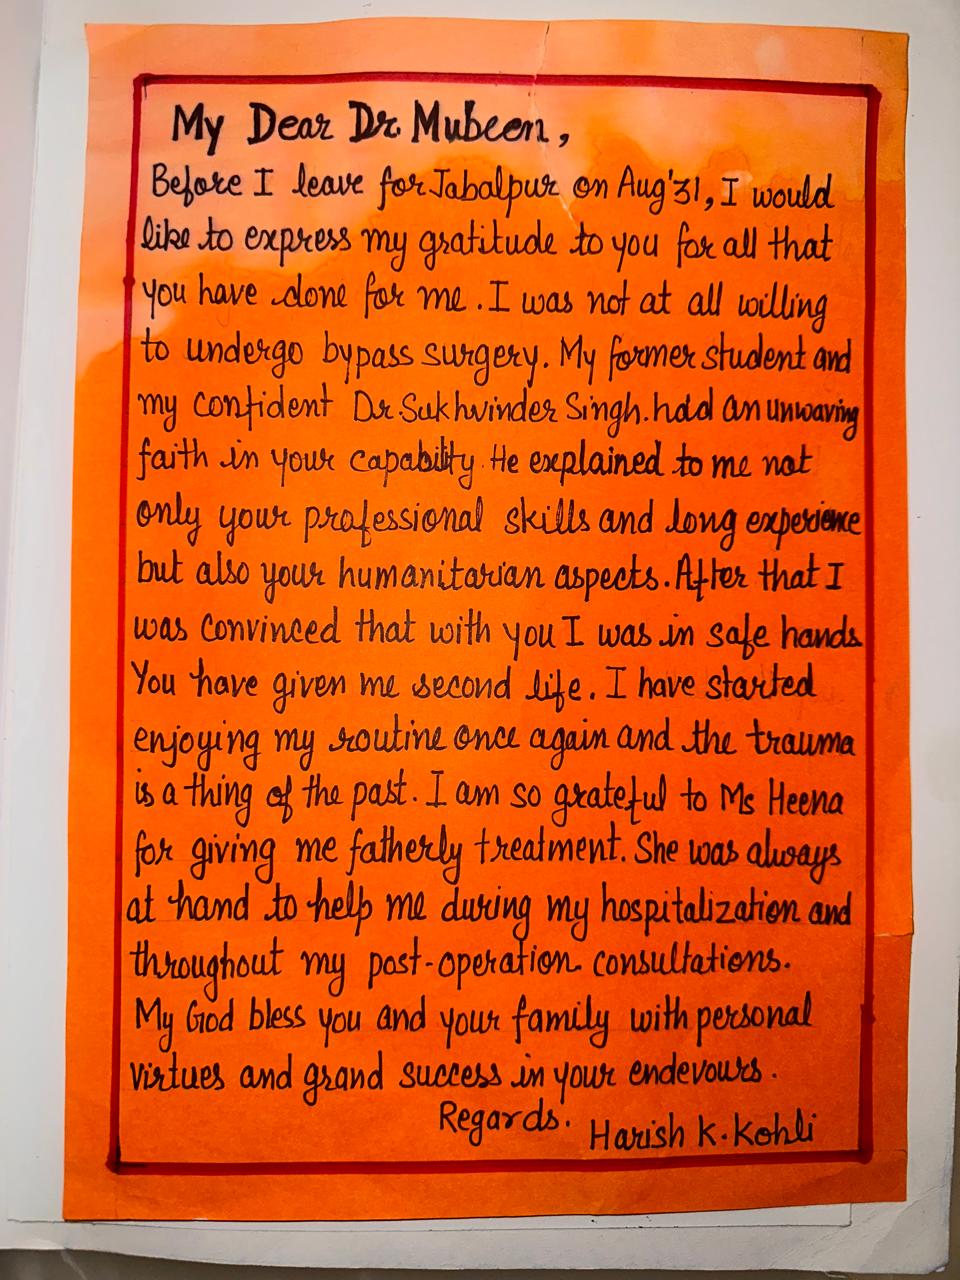 My Dear Dr. Mubeen,
Before I leave for Jabalpur on Aug'31, I would
like to express my gratitude to you for all that
you have done for me. I was not at all willing
to undergo bypass surgery. My former student and
my confident Dr. Sukhvinder Singh. had an unwaving
faith in your capability. He explained to me not
only your professional skills and long experience
but also your humanitarian aspects. After that I
was convinced that with you I was in safe hands
You have given me second life. I have started
enjoying my routine once again and the trauma
is a thing of the past. I am so grateful to Ms Heena
for giving me fatherly treatment. She was always
at hand to help me during my hospitalization and
throughout my post-operation consultations.
My God bless you and your family with personal
virtues and grand success in your endevours.
Regards. Harish K. Kohli